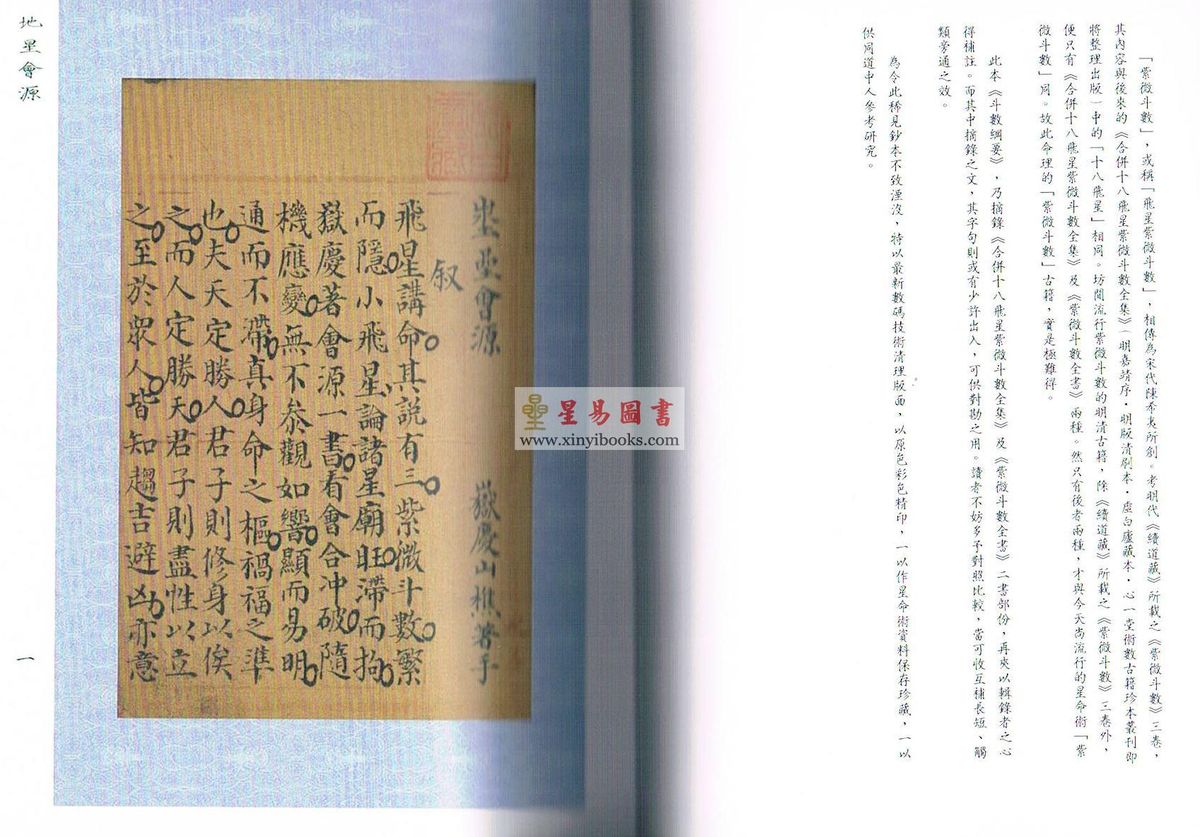 「紫微斗數」，或稱「飛星紫微斗數」，相傳為宋代陳希夷所創。考明代《續道藏》所載之《紫微斗數》三卷，
其內容與後來的《合併十八飛星紫微斗數全集》（明嘉靖序・明版清刷本・虛白廬藏本・心一堂術數古籍珍本叢刊即
將整理出版）中的「十八飛星」相同。坊間流行紫微斗數的明清古籍，除《續道藏》所載之《紫微斗數》三卷外，
便只有《合併十八飛星紫微斗數全集》及《紫微斗數全書》兩種。然只有後者兩種，才與今天尚流行的星命術「紫
微斗數」同。故此命理的「紫微斗數」古籍，實是極難得。
此本《斗數綱要》，乃摘錄《合併十八飛星紫微斗數全集》及《紫微斗數全書》二書部份，再夾以輯錄者之心
得補註。而其中摘錄之文，其字句則或有少許出入，可供對勘之用。讀者不妨多予對照比較，當可收互補長短、觸
類旁通之效。
為令此稀見鈔本不致湮沒，特以最新數碼技術清理版面，以原色彩色精印，一以作星命術資料保存珍藏，一以
供同道中人參考研究。
會源
嶽慶山樵著手
叙
飛星講命其説有三紫微斗數繁
而隱小飛星論諸星廟旺滯而拘
嶽慶著會源一書看會合冲破隨
機應變無不叅觀如響顯而易明
通而不滯真身命之樞禍福之準
也夫天定勝人君子則修身以俟
之而人定勝天君子則盡性以立
之至於眾人皆知趨吉避凶亦意
地星會源
一
星易圖書
www.xinyibooks.com